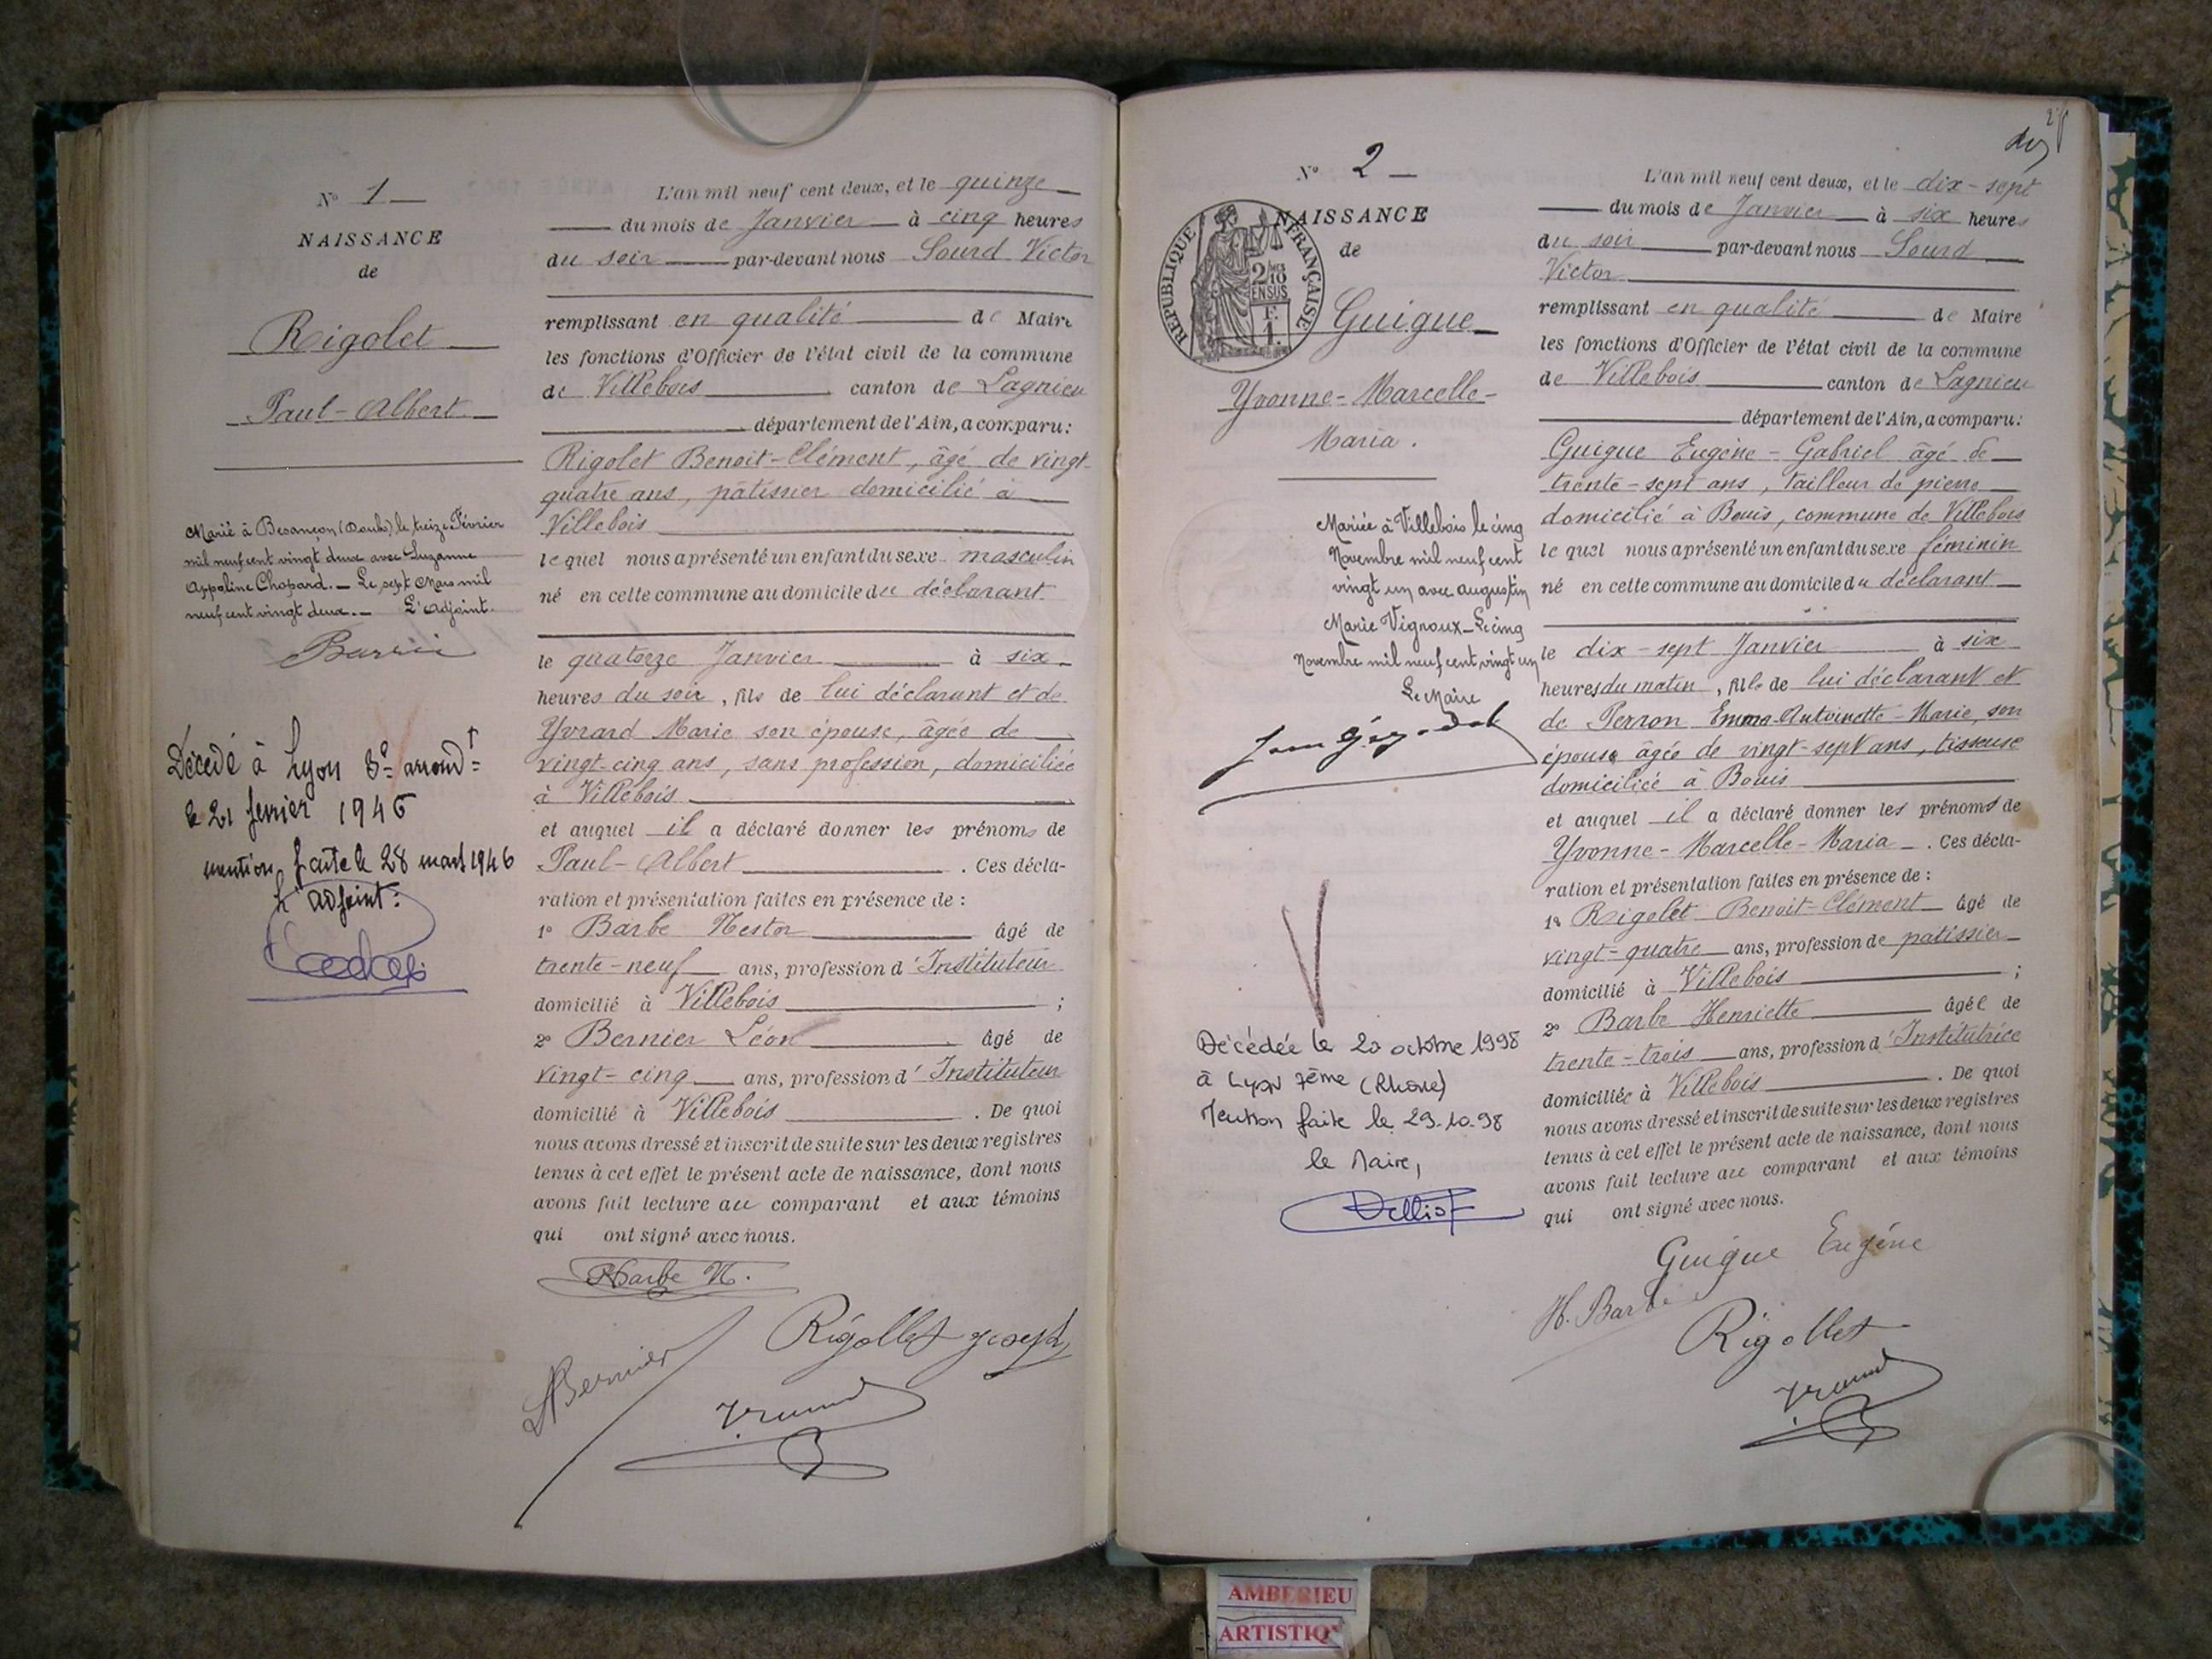 N° 1
NAISSANCE
de
Rigolet
Paul-Albert
Marié à Besançon (Doubs) le treize Février
mil neuf cent vingt deux avec Suzanne
Appoline Chopard. — Le sept Mars mil
neuf cent vingt deux. — L'adjoint.
Décédé à Lyon 8e arrondt
le 21 fevrier 1946
mention faite le 28 mars 1946
L'adjoint:
L'an mil neuf cent deux, et le quinze
du mois de Janvier à cinq heures
du soir par-devant nous Sourd Victor
remplissant en qualité de Maire
les fonctions d'Officier de l'état civil de la commune
de Villebois canton de Lagnieu
département de l'Ain, a comparu:
Rigolet Benoit-Clément, âgé de vingt-
quatre ans, pâtissier domicilié à
Villebois
lequel nous a présenté un enfant du sexe masculin
né en cette commune au domicile du déclarant
le quatorze Janvier à six
heures du soir, fils de lui déclarant et de
Yvrard Marie son épouse, âgée de
vingt-cinq ans, sans profession, domiciliée
à Villebois
et auquel il a déclaré donner les prénoms de
Paul-Albert. Ces décla-
ration et présentation faites en présence de :
1° Barbe Nestor âgé de
trente-neuf ans, profession d'Instituteur
domicilié à Villebois ;
2° Bernier Léon âgé de
vingt-cinq ans, profession d'Instituteur
domicilié à Villebois. De quoi
nous avons dressé et inscrit de suite sur les deux registres
tenus à cet effet le présent acte de naissance, dont nous
avons fait lecture au comparant et aux témoins
qui ont signé avec nous.
Barbe N.
Rigollet Joseph
Bernier
N° 2
NAISSANCE
de
RÉPUBLIQUE FRANÇAISE
2/10 EN SUS
F. 1.
Guigue
Yvonne-Marcelle-
Maria.
Mariée à Villebois le cinq
Novembre mil neuf cent
vingt un avec augustin
Marie Vignoux — Le cinq
Novembre mil neuf cent vingt un
Le Maire
Décédée le 20 octobre 1998
à Lyon 7ème (Rhône)
Mention faite le 29-10-98
le Maire,
L'an mil neuf cent deux, et le dix-sept
du mois de Janvier à six heures
du soir par-devant nous Sourd
Victor
remplissant en qualité de Maire
les fonctions d'Officier de l'état civil de la commune
de Villebois canton de Lagnieu
département de l'Ain, a comparu:
Guigue Eugène-Gabriel âgé de
trente-sept ans, tailleur de pierre
domicilié à Bouis, commune de Villebois
lequel nous a présenté un enfant du sexe féminin
né en cette commune au domicile du déclarant
le dix-sept Janvier à six
heures du matin, fille de lui déclarant et
de Perron Emma-Antoinette-Marie, son
épouse âgée de vingt-sept ans, tisseuse
domiciliée à Bouis
et auquel il a déclaré donner les prénoms de
Yvonne-Marcelle-Maria. Ces décla-
ration et présentation faites en présence de :
1° Rigolet Benoit-Clément âgé de
vingt-quatre ans, profession de patissier
domicilié à Villebois ;
2° Barbe Henriette âgée de
trente-trois ans, profession d'Institutrice
domiciliée à Villebois. De quoi
nous avons dressé et inscrit de suite sur les deux registres
tenus à cet effet le présent acte de naissance, dont nous
avons fait lecture au comparant et aux témoins
qui ont signé avec nous.
Guigue Eugène
H. Barbe
Rigollet
AMBERIEU
ARTISTIQ